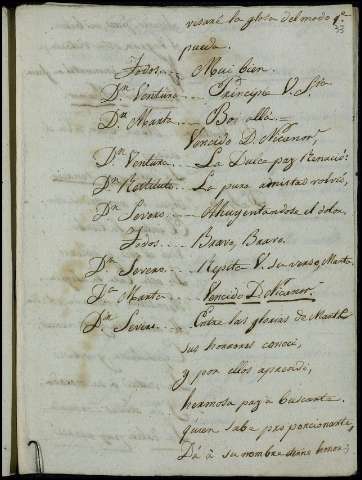 vesaré la glosa del modo q.e
pueda.
33
Todos ... Mui bien.
D.n Ventura ... Principie V. S.ra
D.a Marta ... Boi allá =
Vencido D. Nicanor,
D.n Ventura ... La Dulce paz Renació:
D.n Restituto ... La pura amistad volvió,
D.n Severo ... Ahuyentandose el dolor.
Todos ... Bravo, Bravo.
D.n Severo ... Repita V. su verso, Marta.
D.a Marta ... Vencido D. Nicanor.
D.n Severo ... Entre las glorias de Marte
sus honores conocí,
y por ellos aprendí,
hermosa paz a buscarte.
quien sabe proporcionarte,
Dá à su nombre honor;